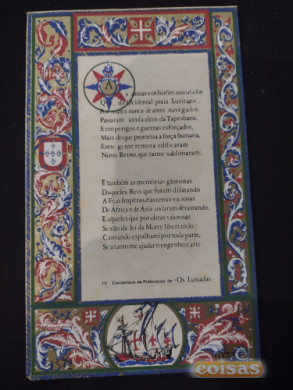 A
s armas e os barões assinalados
Que, da Ocidental praia Lusitana,
Por mares nunca de antes navegados
Passaram ainda além da Taprobana,
E em perigos e guerras esforçados,
Mais do que prometia a força humana,
Entre gente remota edificaram
Novo Reino, que tanto sublimaram;
E também as memórias gloriosas
Daqueles Reis que foram dilatando
A Fé, o Império, e as terras viciosas
De África e de Ásia andaram devastando,
E aqueles que por obras valerosas
Se vão da lei da Morte libertando:
Cantando espalharei por toda parte,
Se a tanto me ajudar o engenho e arte.
Centenário da Publicação de «Os Lusíadas»
coisas